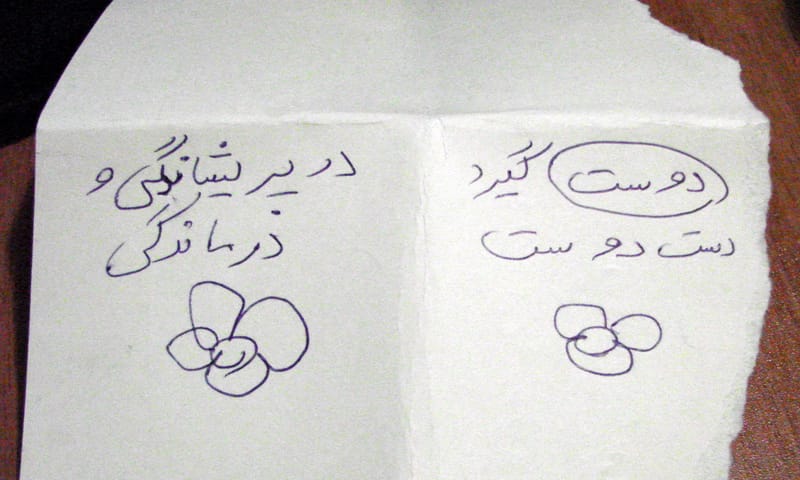 دوست گیرد
دست دوست
در پریشاندگی و
درماندگی